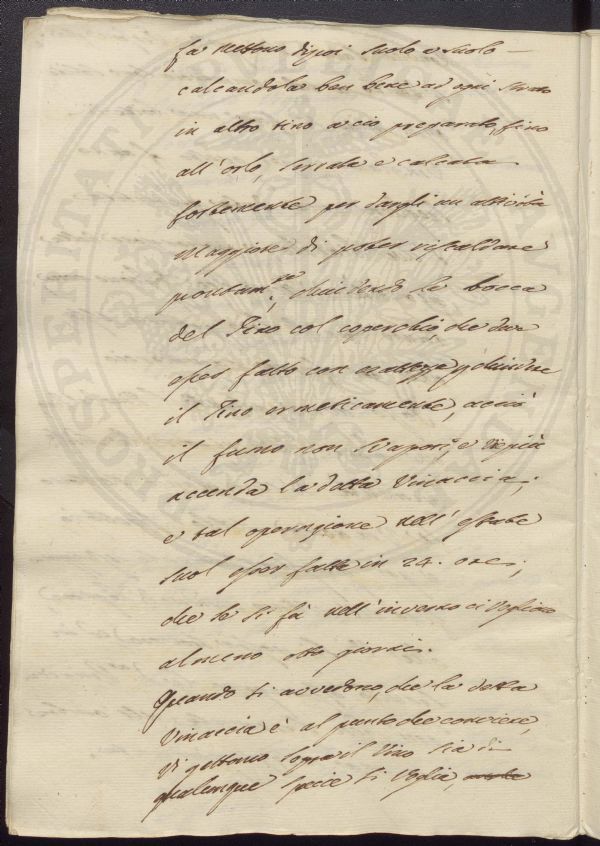 la mettono dipoi suolo e suolo
calcandola ben bene ad ogni strato
in altro tino a cio preparato, fino
all'orlo, serrata e calcata
fortemente per dargli un attività
maggiore di poter riscaldare
prontam.te, chiudendo la bocca
del Tino col coperchio, che dee
esser fatto con esattezza p chiudere
il Tino ermeticamente, acciò
il fumo non svapori, e vieppiù
accenda la detta Vinaccia;
e tal operazione nell'estate
suol esser fatta in 24. ore;
che se si fà nell'inverno ci vogliono
almeno otto giorni.
Quando si avvedono, che la detta
Vinaccia è al punto che conviene,
vi gettono sopra il Vino sia di
qualunque specie si voglia,